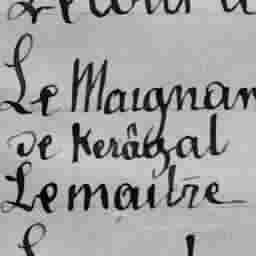 Le Maignan
de Kerâgal
Lemaitre